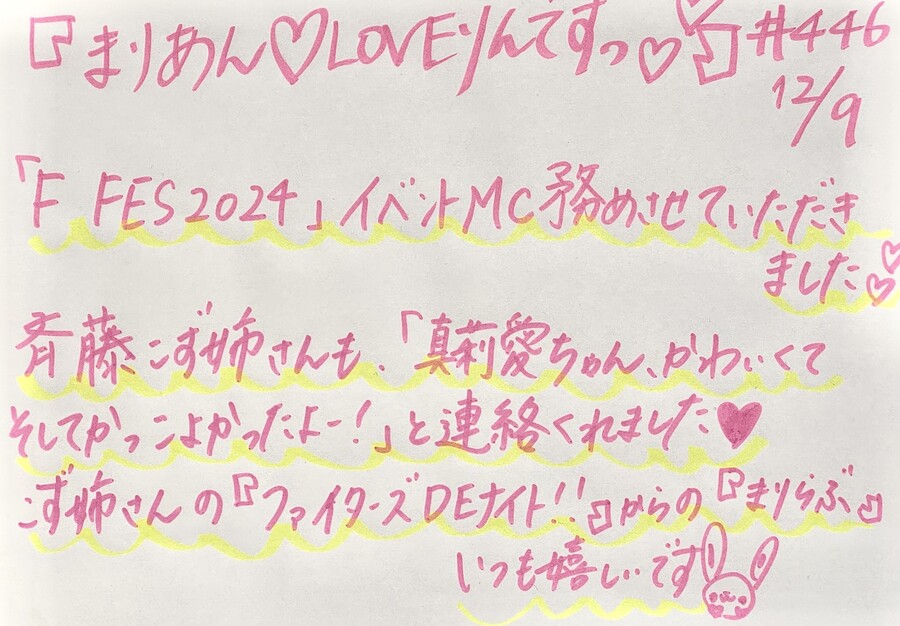 『まりあん♡LOVEりんですっ♡♡』#446
12/9
「F FES2024」イベントMC務めさせていただき
ました♡♡
斉藤こず姉さんも、「真莉愛ちゃん、かわいくて
そしてかっこよかったよー!」と連絡くれました♥
こず姉さんの『ファイターズDEナイト!!』からの『まりらぶ』
いつも嬉しいです